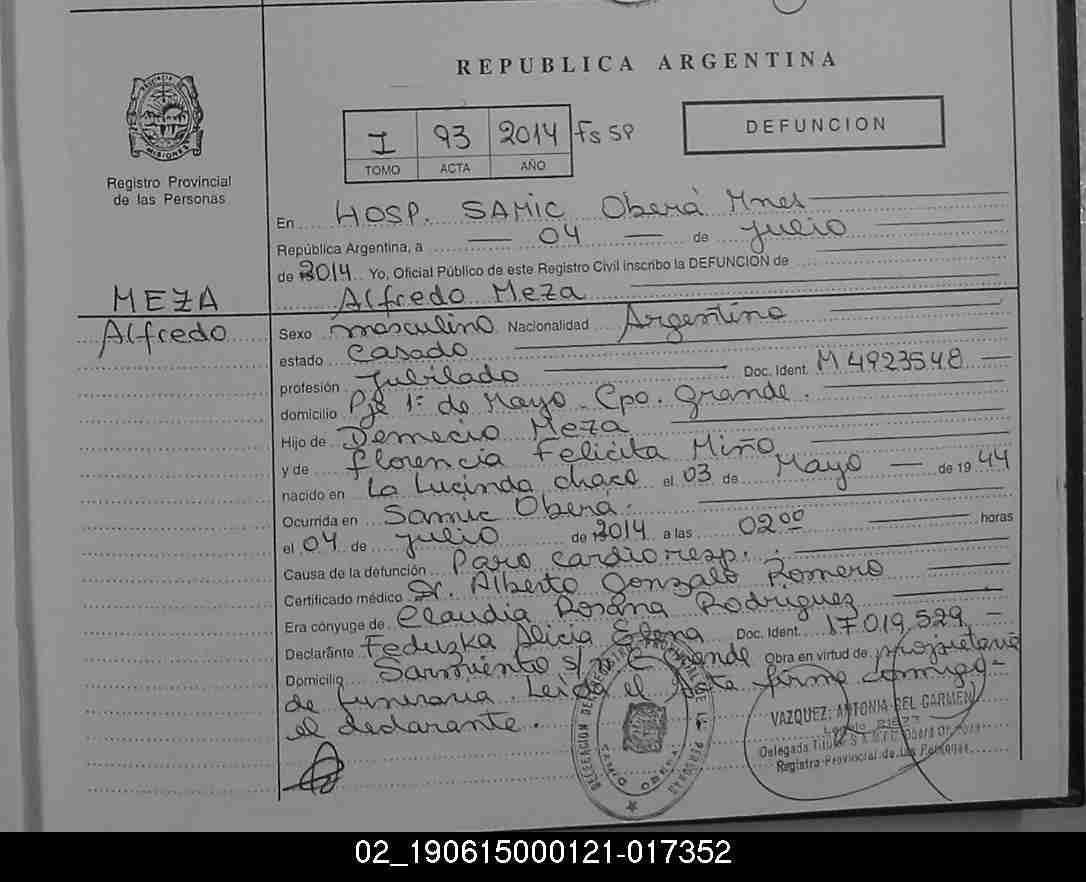 REPUBLICA ARGENTINA
PROVINCIA
MISIONES
Registro Provincial
de las Personas
I 93 2014 Fs 58
TOMO ACTA AÑO
DEFUNCION
En HOSP. SAMIC Oberá Mnes
República Argentina, a 04 de Julio
de 2014 Yo, Oficial Público de este Registro Civil inscribo la DEFUNCION de
MEZA Alfredo Meza
Alfredo Sexo masculino Nacionalidad Argentino
estado Casado
profesión Jubilado Doc. Ident. M 4923548
domicilio Pje 1º de Mayo Cpo. Grande.
Hijo de Demecio Meza
y de Florencia Felicita Miño
nacido en La Lucinda chaco el 03 de Mayo de 19 44
Ocurrida en Samic Oberá.
el 04 de Julio de 2014 a las 02 00 horas
Causa de la defunción Paro cardioresp.
Certificado médico Dr. Alberto Gonzalo Romero
Era cónyuge de Claudia Rosana Rodriguez
Declarante Feduzka Alicia Elena Doc. Ident. 17019,529
Domicilio Sarmiento s/n C Grande Obra en virtud de propietaria
de funeraria. Leída el Acta firma conmigo
el declarante.
VAZQUEZ, ANTONIA DEL CARMEN
Delegada Titular SAMIC Oberá
Registro Provincial de las Personas
SAMIC OBERA
02_190615000121-017352